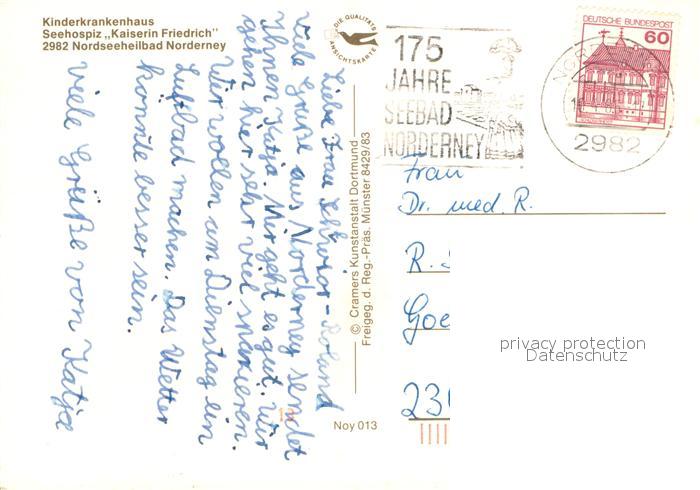 Kinderkrankenhaus
Seehospiz „Kaiserin Friedrich"
2982 Nordseeheilbad Norderney
DIE QUALITÄTS
ANSICHTSKARTE
Liebe Frau Roland
viele Grüße aus Norderney sendet
Ihnen Katja. Mir geht es gut. Wir
gehen hier sehr viel spazieren.
Wir wollen am Dienstag ein
Luftbad machen. Das Wetter
könnte besser sein.
viele Grüße von Katja
© Cramers Kunstanstalt Dortmund
Freigeg. d. Reg.-Präs. Münster 8429/83
Noy 013
175
JAHRE
SEEBAD
NORDERNEY
DEUTSCHE BUNDESPOST
60
2982
Frau
Dr. med. R.
R.
Goe
23
privacy protection
Datenschutz